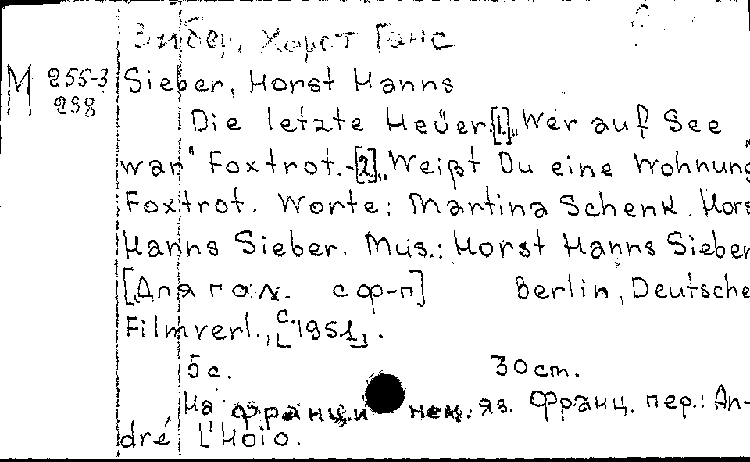 Зибер, Хорст Ганс
M 255-3 Sieber, Horst Hanns
238
Die letzte Heuer [1]. „Wer auf See
war" Foxtrot.-[2]. „Weißt Du eine Wohnung"
Foxtrot. Worte: Martina Schenk. Hors
Hanns Sieber. Mus.: Horst Hanns Sieber
[Для гол. с ф-п] Berlin, Deutsche
Filmverl., [c. 1951].
5 с. 30 cm.
На франц. и нем. яз. Франц. пер.: An-
dré L'Hoio.